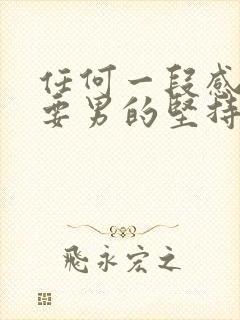 任何一段感
要男的坚持
飛永宏之